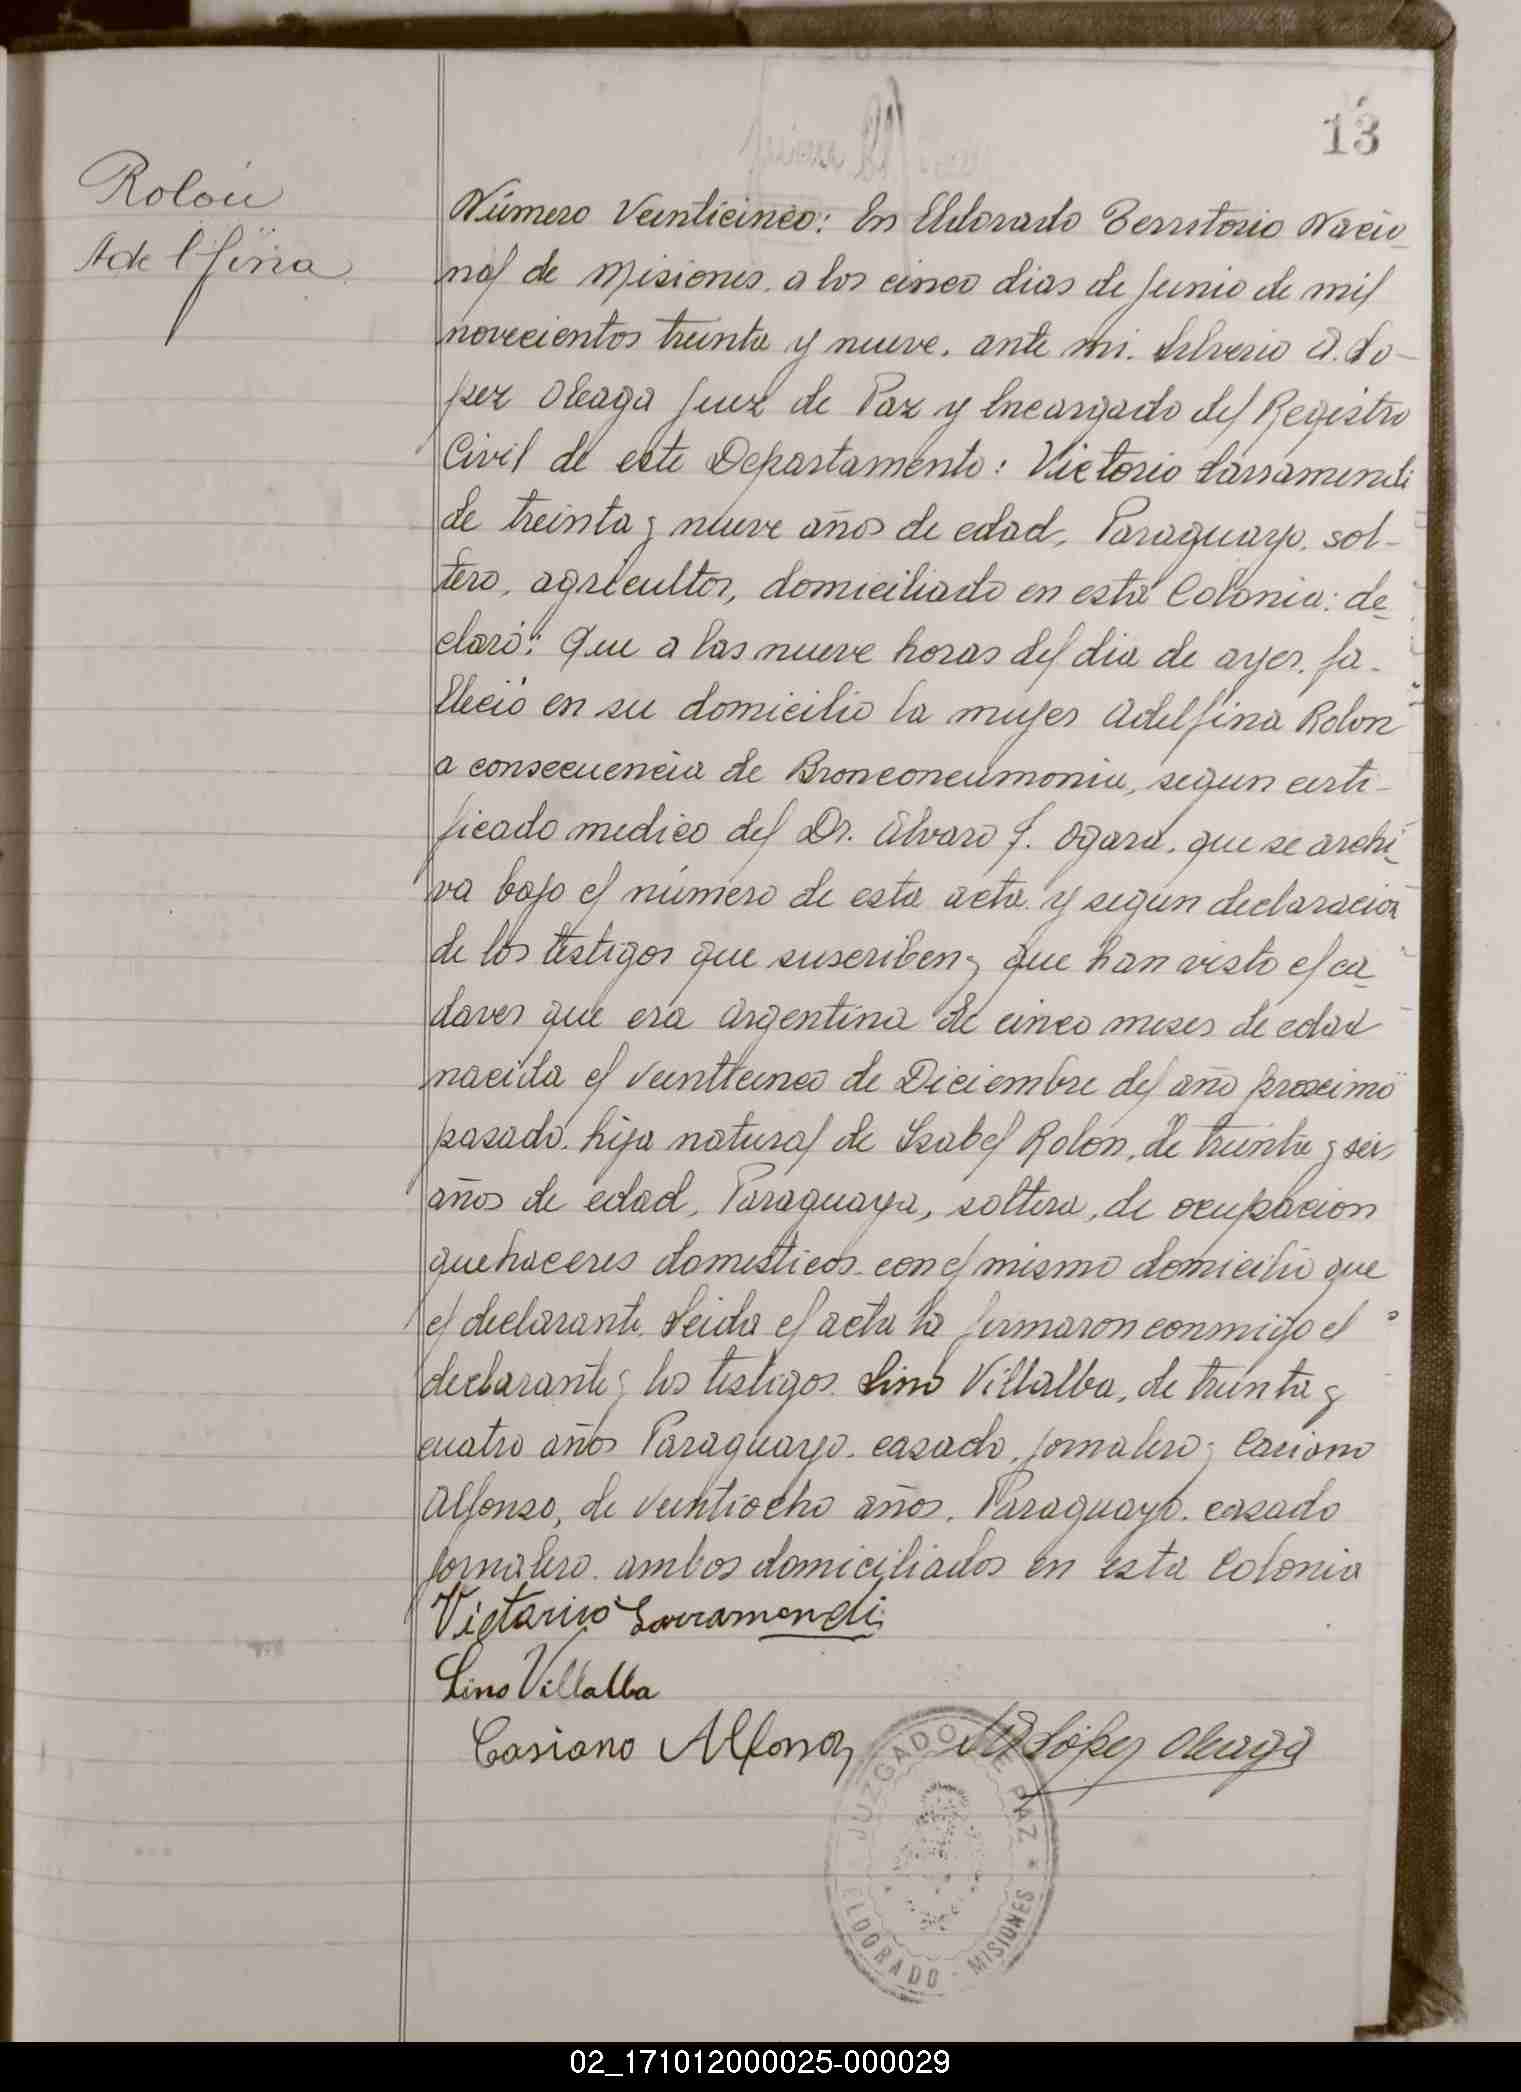 13
Rolón
Adelfina
Número Veinticinco: En Eldorado Territorio Nacio-
nal de Misiones. a los cinco dias de Junio de mil
novecientos treinta y nueve. ante mi. Silverio A. Lo-
pez Oleaga Juez de Paz y Encargado del Registro
Civil de este Departamento: Victorio Larramendi
de treinta y nueve años de edad, Paraguayo. sol-
tero, agricultor, domiciliado en esta Colonia: de-
claró: Que a las nueve horas del dia de ayer. fa-
lleció en su domicilio la mujer Adelfina Rolon
a consecuencia de Bronconeumonia, segun certi-
ficado medico del Dr. Alvaro J. Ogara. que se archi-
va bajo el número de esta acta y segun declaración
de los testigos que suscriben y que han visto el ca-
daver que era Argentina de cinco meses de edad
nacida el veinticinco de Diciembre del año proximo
pasado. hija natural de Isabel Rolon, de treinta y seis
años de edad, Paraguaya, soltera, de ocupacion
quehaceres domesticos. con el mismo domicilio que
el declarante. Leida el acta la firmaron conmigo el
declarante y los testigos. Lino Villalba, de treinta y
cuatro años Paraguayo. casado, jornalero y Casiano
Alfonso, de veintiocho años. Paraguayo. casado
jornalero. ambos domiciliados en esta Colonia
Victorio Larramendi
Lino Villalba
Casiano Alfonso López Oleaga
JUZGADO DE PAZ
ELDORADO - MISIONES
02_171012000025-000029